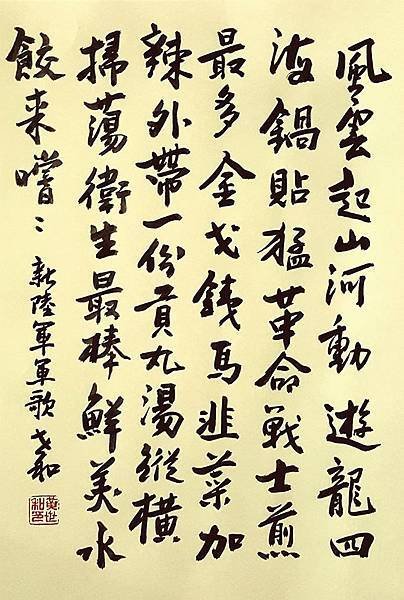 風雲起山河動遊龍四
海鍋貼猛革命戰士煎
最多金戈銕馬韭菜加
辣外帶一份貢丸湯縱橫
掃蕩衛生最棒鮮美水
餃来嚐〻
新陸軍軍歌 世和